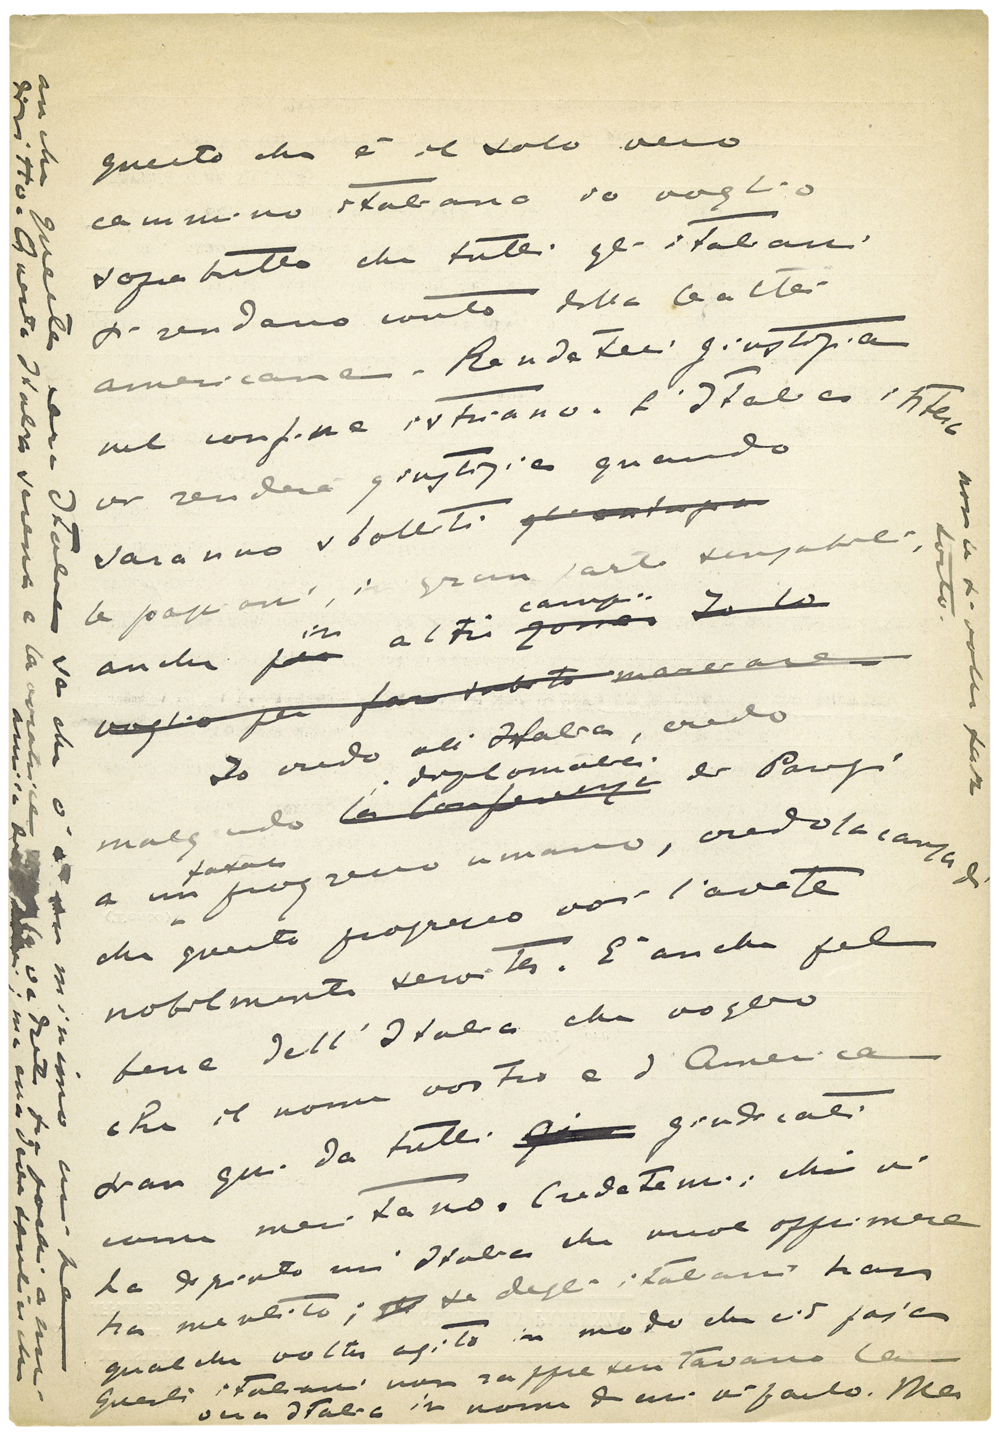 questo che è il solo vero
cammino italiano io voglio
sopratutto che tutti gli italiani
si rendano conto della lealtà
americana. Rendeteci giustizia
nel confine istriano. L'Italia intera
vi renderà giustizia quando
saranno sbolliti
le passioni, in gran parte scusabili,
anche per in altri zone campi Io lo
voglio per far subito
Io credo all'Italia, credo
malgrado la Conferenza i diplomatici di Parigi
a un futuro progresso umano, credo la causa di
che questo progresso voi l'avete
nobilmente servita. È anche pel
bene dell'Italia che voglio
che il nome vostro e d'America
sian qui da tutti giudicati
come meritano. Credetemi: chi vi
ha dipinto un'Italia che vuole opprimere
ha mentito; se degli italiani han
qualche volta agito in modo che ciò paia
questi italiani non rappresentavano la
vera Italia in nome di cui vi parlo. Ma
anche questa vera Italia sa che c'è un minimo cui ha
diritto. Questa Italia serena e lavoratrice
non le si vuol far
torto.